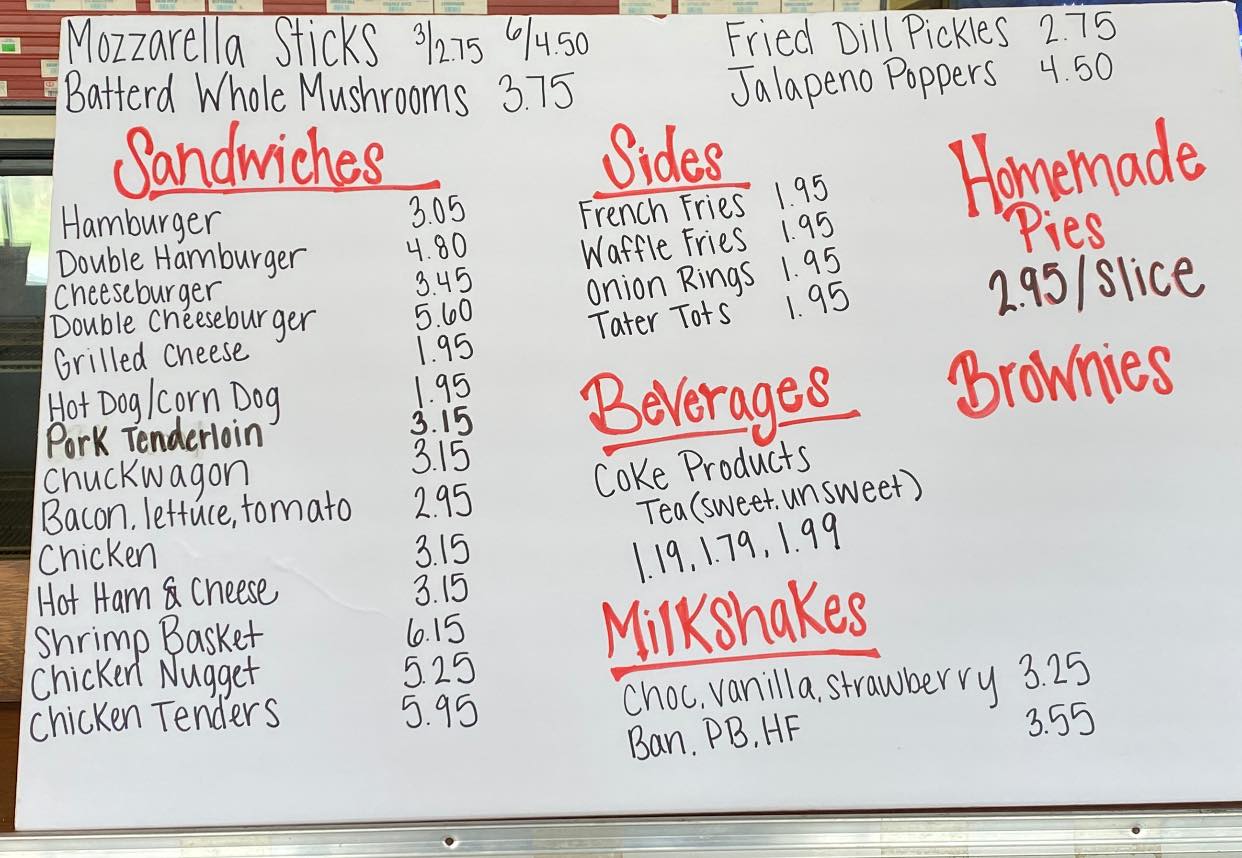 Mozzarella Sticks 3/2.75 6/4.50
Batterd Whole Mushrooms 3.75
Fried Dill Pickles 2.75
Jalapeno Poppers 4.50
Sandwiches
Hamburger 3.05
Double Hamburger 4.80
Cheeseburger 3.45
Double Cheeseburger 5.60
Grilled Cheese 1.95
Hot Dog/Corn Dog 1.95
Pork Tenderloin 3.15
Chuckwagon 3.15
Bacon, lettuce, tomato 2.95
Chicken 3.15
Hot Ham & Cheese 3.15
Shrimp Basket 6.15
Chicken Nugget 5.25
Chicken Tenders 5.95
Sides
French Fries 1.95
Waffle Fries 1.95
Onion Rings 1.95
Tater Tots 1.95
Beverages
Coke Products
Tea (sweet, unsweet)
1.19, 1.79, 1.99
Milkshakes
Choc, vanilla, strawberry 3.25
Ban, PB, HF 3.55
Homemade
Pies
2.95/slice
Brownies